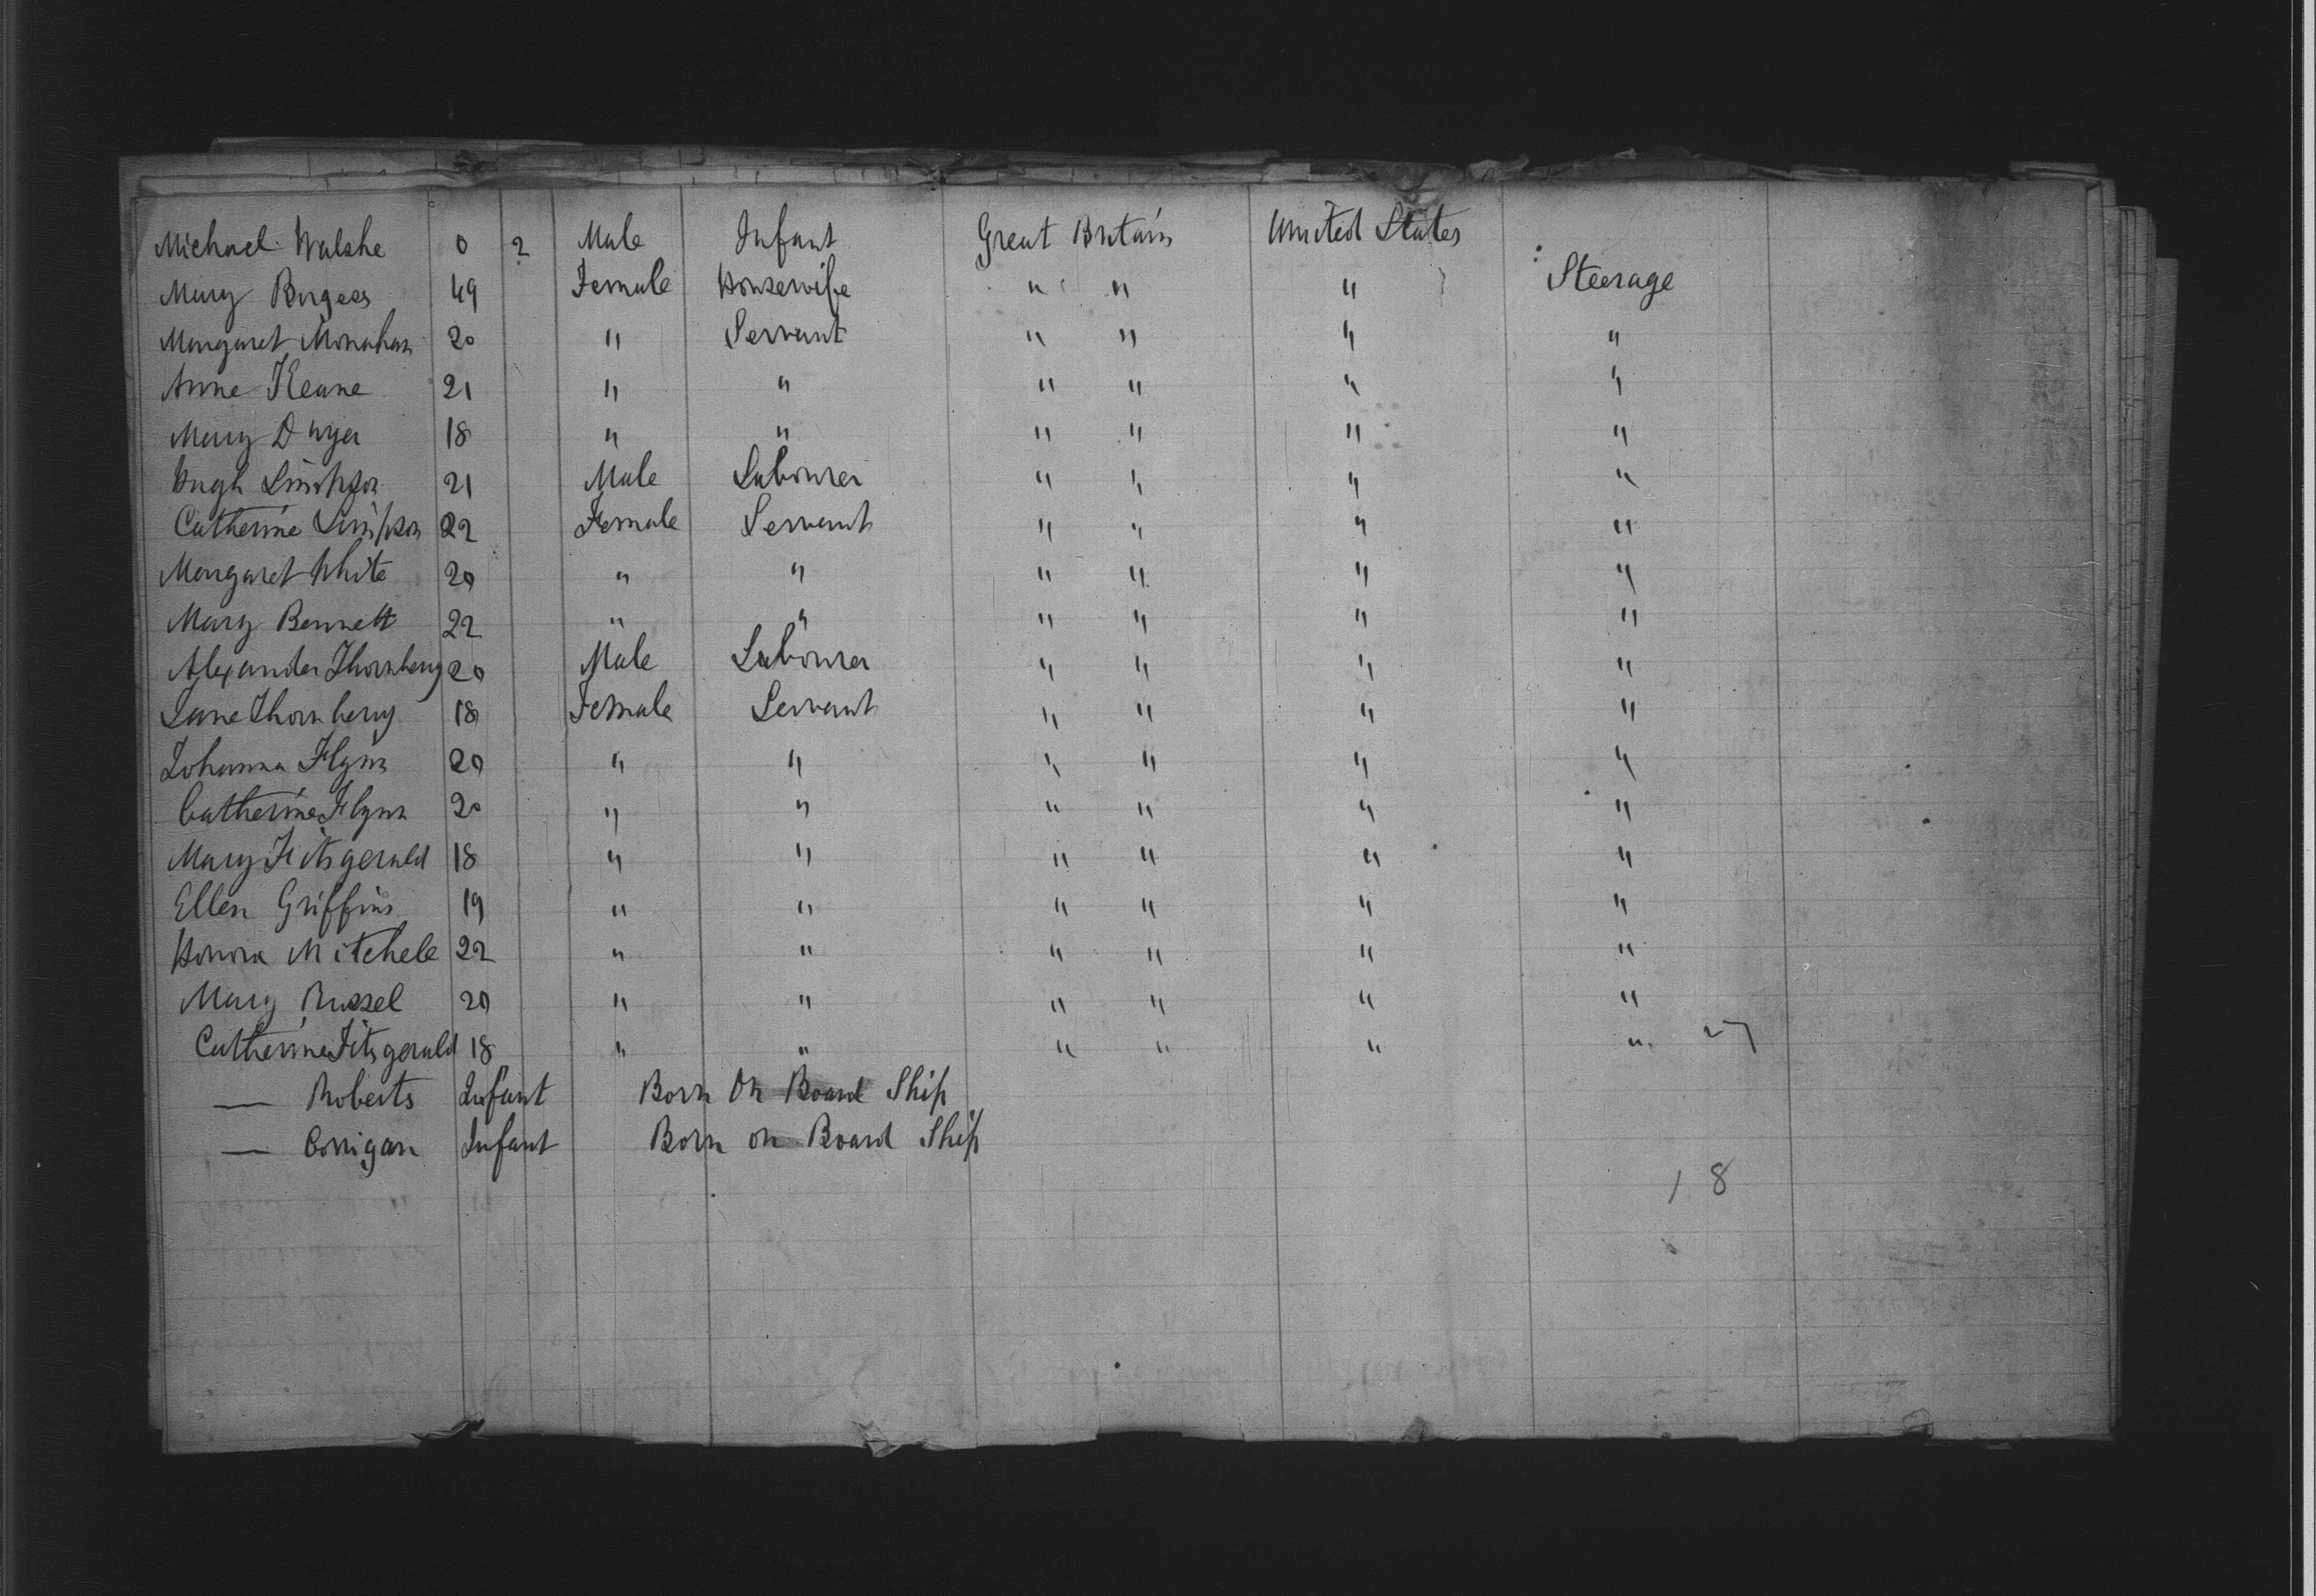 Michael Walshe 0 2 Male Infant Great Britain United States
Mary Burgess 49 Female Housewife " " " Steerage
Margaret Monahan 20 " Servant " " " "
Anne Keane 21 " " " " " "
Mary Dwyer 18 " " " " " "
Hugh Simpson 21 Male Labourer " " " "
Catherine Simpson 22 Female Servant " " " "
Margaret White 20 " " " " " "
Mary Bennett 22 " " " " " "
Alexander Thornberry 20 Male Labourer " " " "
Jane Thornberry 18 Female Servant " " " "
Johanna Flynn 20 " " " " " "
Catherine Flynn 20 " " " " " "
Mary Fitsgerald 18 " " " " " "
Ellen Griffins 19 " " " " " "
Honora Mitchele 22 " " " " " "
Mary Russel 20 " " " " " "
Catherine Fitsgerald 18 " " " " " " 27
— Roberts Infant Born On Board Ship
— Corrigan Infant Born on Board Ship
18